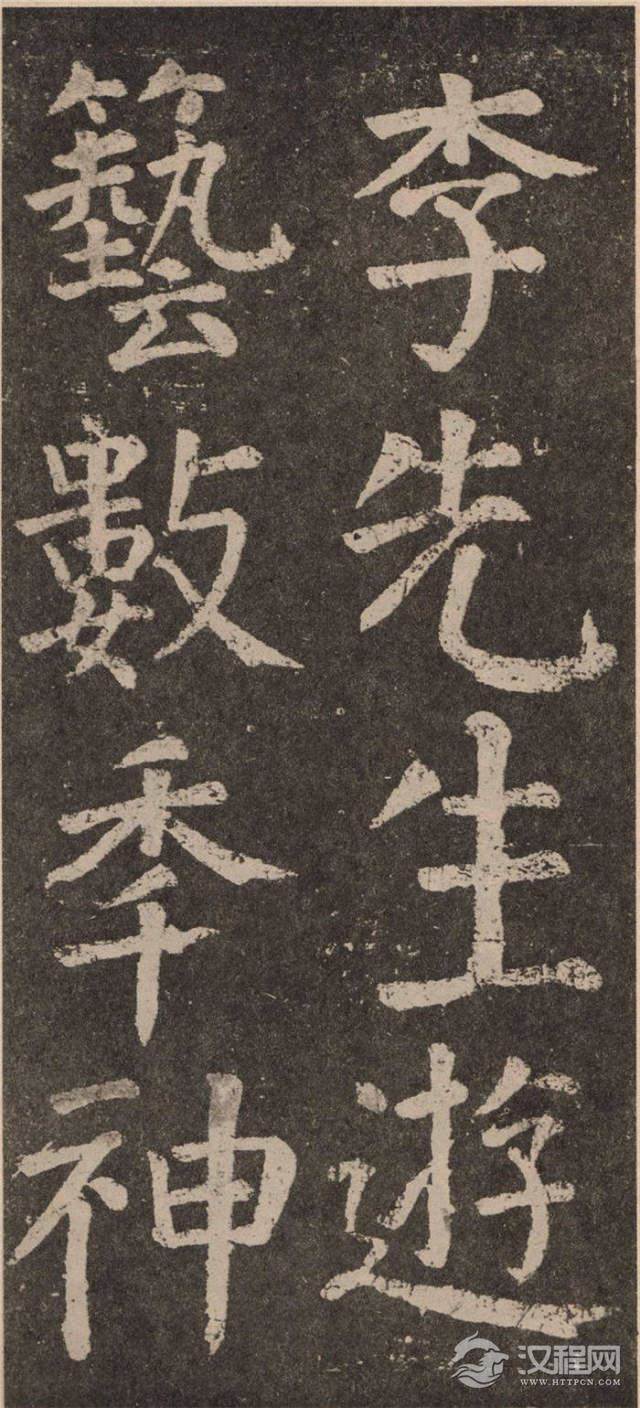 李先生遊
藝數秊神
汉程网
WWW.HTTPCN.COM